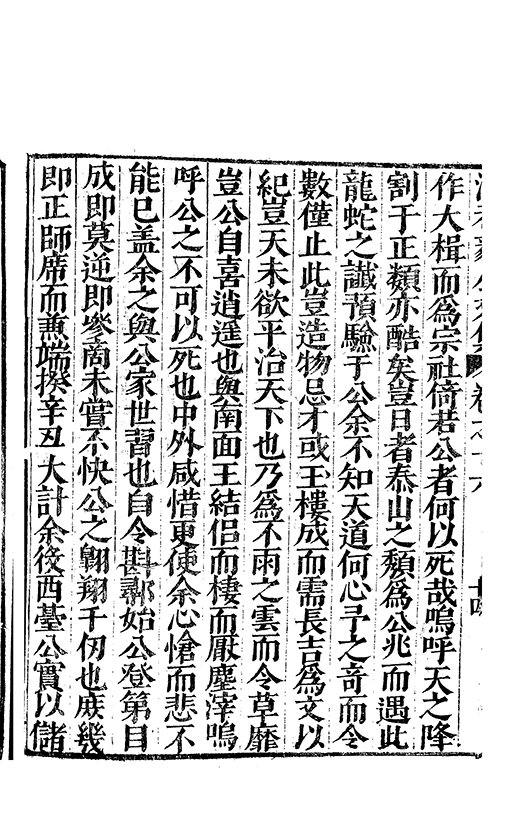 卷之十六
作大楫而為宗社倚若公者何以死哉嗚呼天之降
割于正類亦酷矣豈日者泰山之頹為公兆而遇此
龍蛇之讖預驗于公余不知天道何心予之奇而令
數僅止此豈造物忌才或玉樓成而需長吉為文以
紀豈天未欲平治天下也乃為不雨之雲而令草靡
豈公自喜逍遥也與南面王結侶而棲而厭塵滓嗚
呼公之不可以死也中外咸惜更使余心愴而悲不
能已盖余之與公家世習也自令斟鄩始公登第目
成即莫逆即參商未嘗不快公之翱翔千仞也庻幾
即正師席而兼端揆辛丑大計余役西臺公實以儲